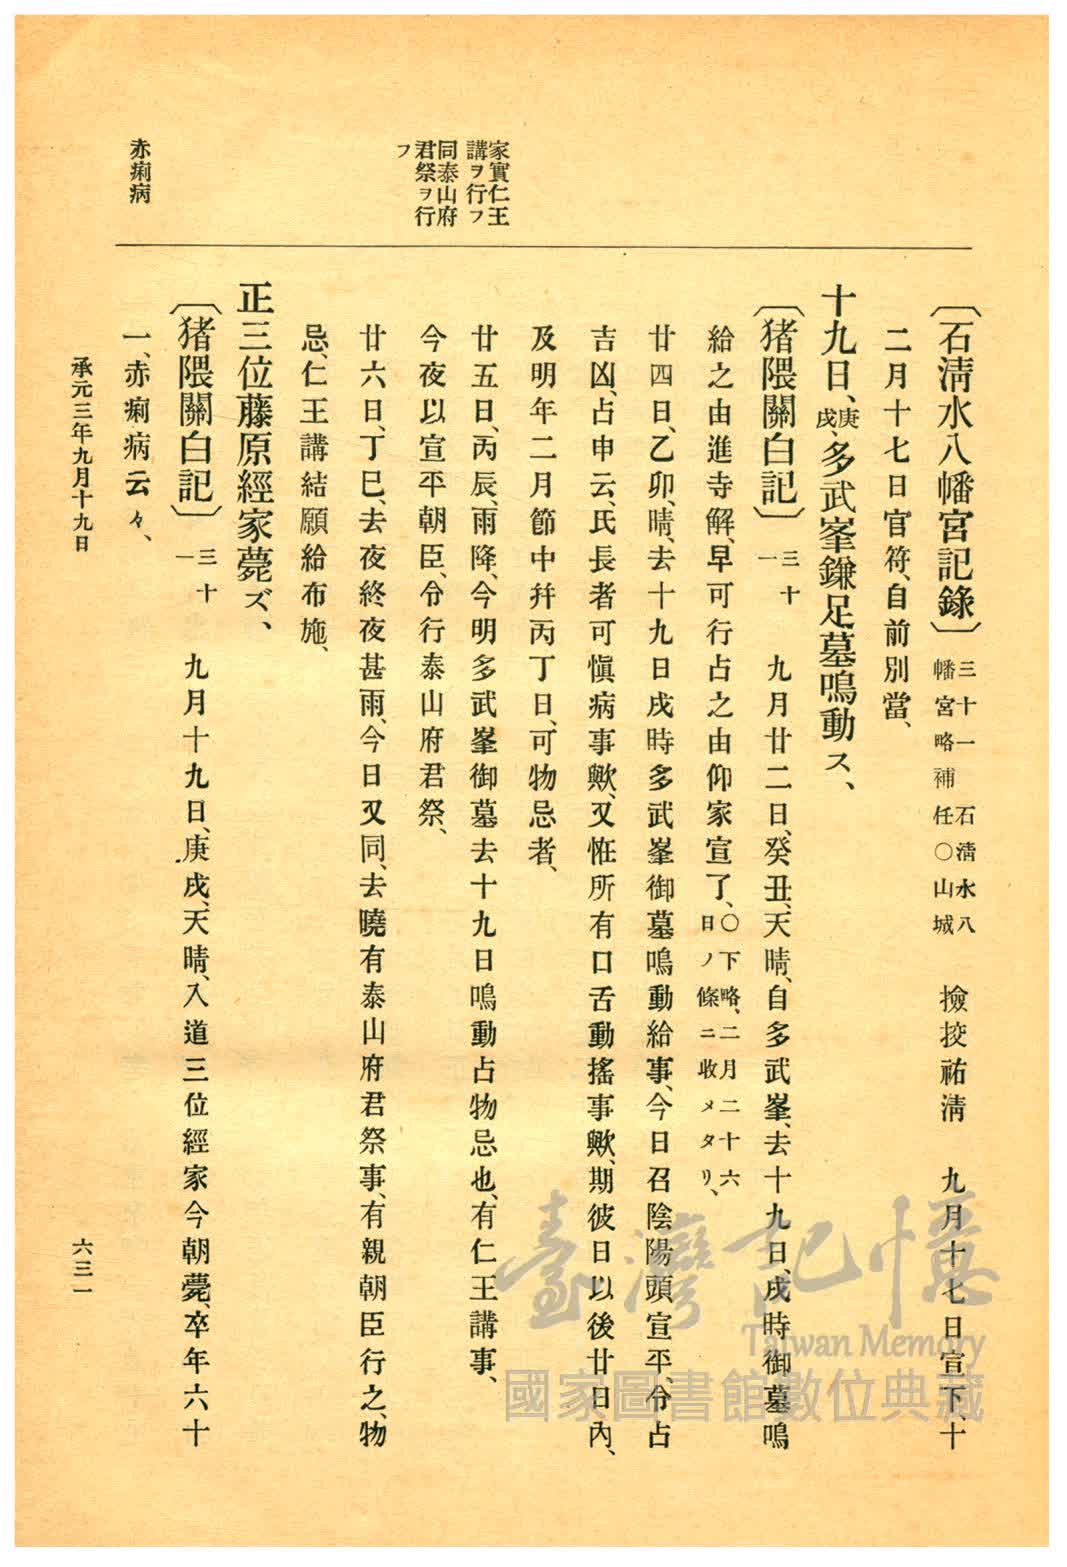 家實仁王
講ヲ行フ
同泰山府
君祭ヲ行
フ
赤痢病
〔石淸水八幡宮記錄〕三十一 石淸水八幡宮略補任○山城 撿挍祐淸 九月十七日宣下、十
二月十七日官符、自前別當、
十九日、庚戌、多武峯鎌足墓鳴動ス、
〔猪隈關白記〕三十一 九月廿二日、癸丑、天晴、自多武峯、去十九日、戌時御墓鳴
給之由進寺解、早可行占之由仰家宣了、○下略、二月二十六日ノ條ニ收メタリ、
廿四日、乙卯、晴、去十九日戌時多武峯御墓鳴動給事、今日召陰陽頭宣平、令占
吉凶、占申云、氏長者可愼病事歟、又恠所有口舌動搖事歟、期彼日以後廿日內、
及明年二月節中幷丙丁日、可物忌者、
廿五日、丙辰、雨降、今明多武峯御墓去十九日鳴動占物忌也、有仁王講事、
今夜以宣平朝臣、令行泰山府君祭、
廿六日、丁巳、去夜終夜甚雨、今日又同、去曉有泰山府君祭事、有親朝臣行之、物
忌、仁王講結願給布施、
正三位藤原經家薨ズ、
〔猪隈關白記〕三十一 九月十九日、庚戌、天晴、入道三位經家今朝薨、卒年六十
一、赤痢病云々、
承元三年九月十九日
六三一
臺灣記憶
Taiwan Memory
國家圖書館數位典藏